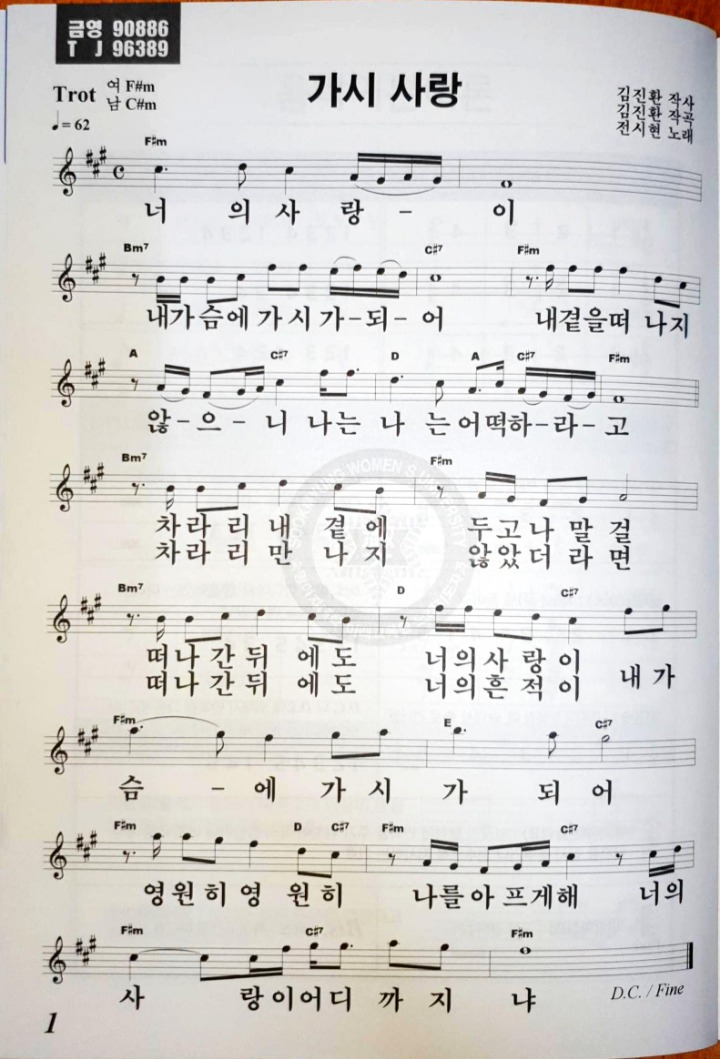 금영 90886
T J 96389
가시 사랑
Trot 여 F#m
남 C#m
♩= 62
김진환 작사
김진환 작곡
전시현 노래
F#m
너 의 사 랑 - 이
Bm7 C#7 F#m
내가슴에 가시 가-되-어 내곁을떠 나지
A C#7 D A C#7 F#m
않-으-니 나는 나 는어떡하-라-고
Bm7 F#m
차라리내 곁에 두고나 말걸
차라리만 나지 않았더라면
Bm7 D C#7
떠나간뒤 에도 너의사랑이 내가
떠나간뒤 에도 너의흔적이
F#m E C#7
슴 - 에 가 시 가 되 어
F#m D C#7 F#m C#7
영원히영 원히 나를아프게해 너의
F#m C#7 F#m
사 랑이어디 까 지 냐
D.C. / Fine
1